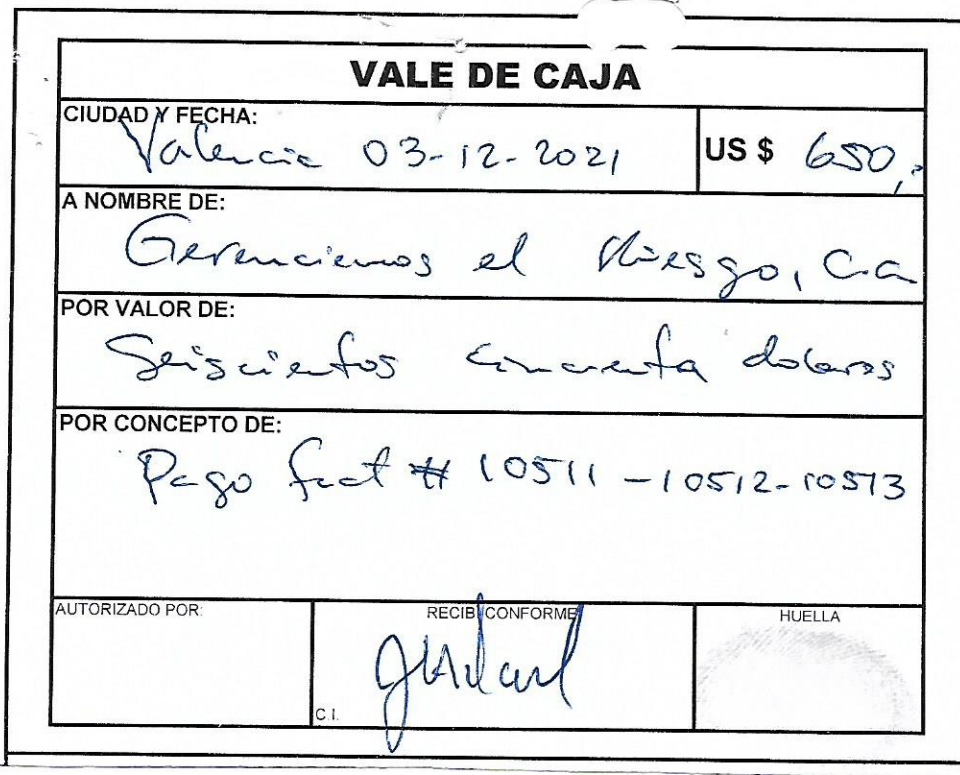 VALE DE CAJA
CIUDAD Y FECHA:
Valencia 03-12-2021
US $ 650,-
A NOMBRE DE:
Gerenciemos el Riesgo, C.a
POR VALOR DE:
Seiscientos cincuenta dolares
POR CONCEPTO DE:
Pago fact # 10511 - 10512 - 10513
AUTORIZADO POR:
RECIBI CONFORME
HUELLA
C.I.